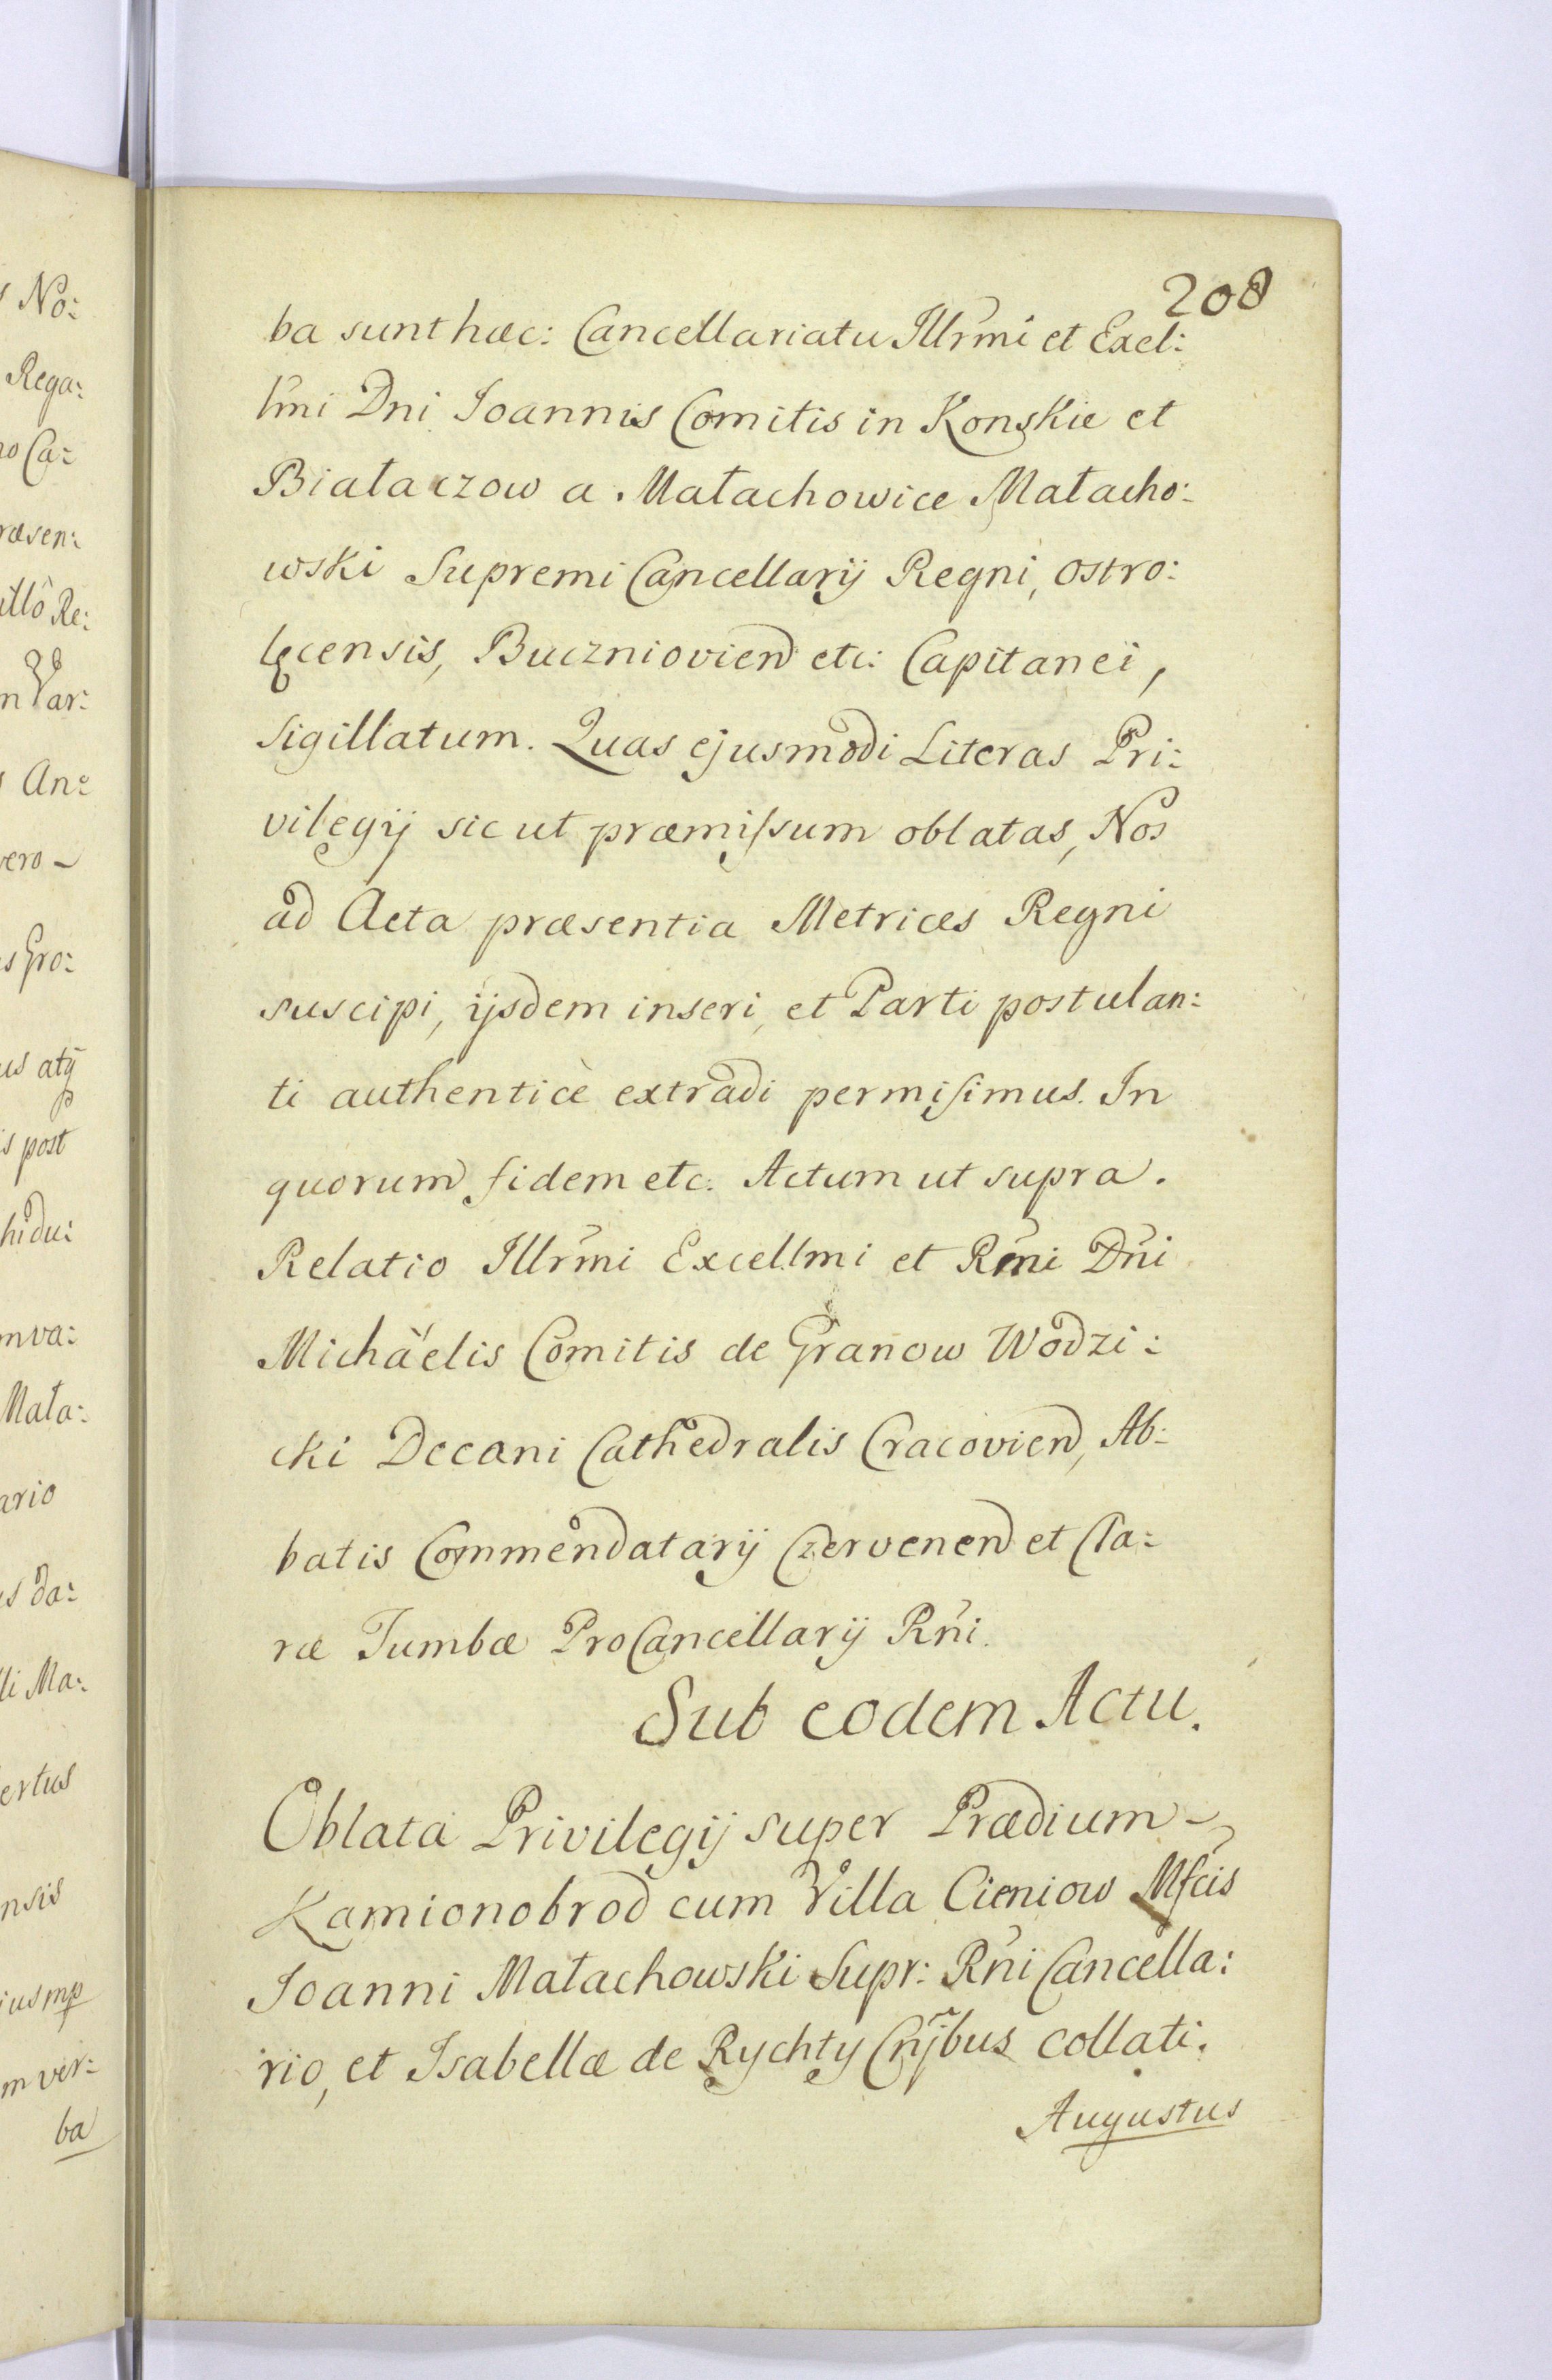 208
ba sunt hæc: Cancellariatu Illrmi et Excl:
lmi Dni Joannis Comitis in Konskie et
Białaczow a Małachowice Małacho:
wski Supremi Cancellarij Regni, Ostro:
łęcensis, Buczniovien etc: Capitanei,
sigillatum. Quas ejusmodi Literas Pri:
vilegij sic ut præmissum oblatas, Nos
ad Acta præsentia Metrices Regni
suscipi, ijsdem inseri, et Parti postulan:
ti authenticè extradi permisimus. In
quorum fidem etc. Actum ut supra.
Relatio Illrmi Excellmi et Rmi Dni
Michäelis Comitis de Granow Wodzi:
cki Decani Cathedralis Cracovien, Ab:
batis Commendatarij Czervenen et Cla:
ræ Tumbæ ProCancellarij Rni.
Sub eodem Actu.
Oblata Privilegij super Prædium
Kamionobrod cum Villa Cieniow Mfcis
Joanni Małachowski Supr: Rni Cancella:
rio, et Isabellæ de Rychty Cnjbus collati.
Augustus
No:
Rega:
Ca:
ræsen:
Re:
Var:
An:
vero
Gro:
us atq
post
hidu:
Mała:
ario
da:
Ma:
ertus
nsis
ver:
ba